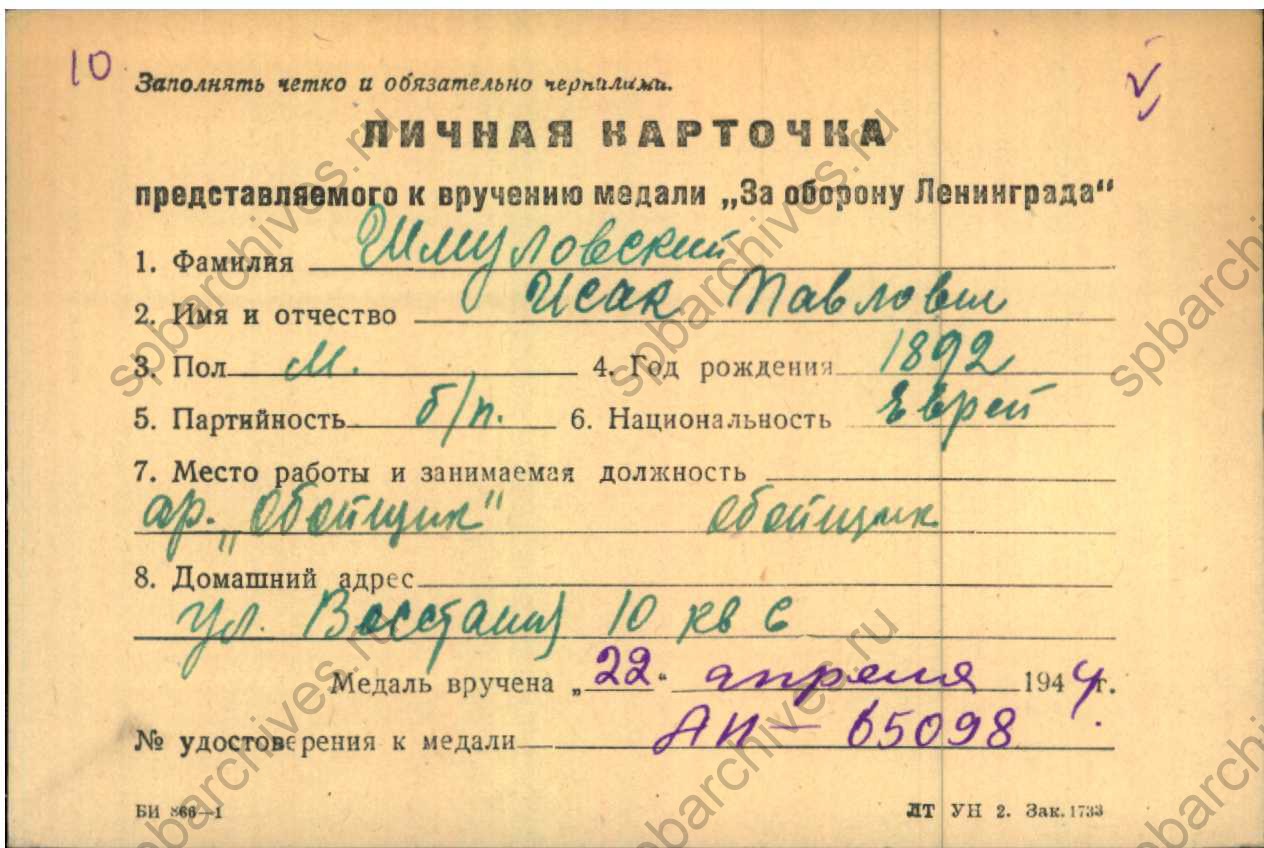 10
Заполнять четко и обязательно чернилами.
ЛИЧНАЯ КАРТОЧКА
представляемого к вручению медали „За оборону Ленинграда“
1. Фамилия Шмуловский
2. Имя и отчество Исак Павлович
3. Пол М. 4. Год рождения 1892
5. Партийность б/п. 6. Национальность Еврей
7. Место работы и занимаемая должность
ар. „Обойщик“ обойщик
8. Домашний адрес
ул. Восстания 10 кв 6
Медаль вручена „22“ апреля 1944 г.
№ удостоверения к медали АП — 65098
БИ 866—1 ЛТ УН 2. Зак. 1733
spbarchives.ru